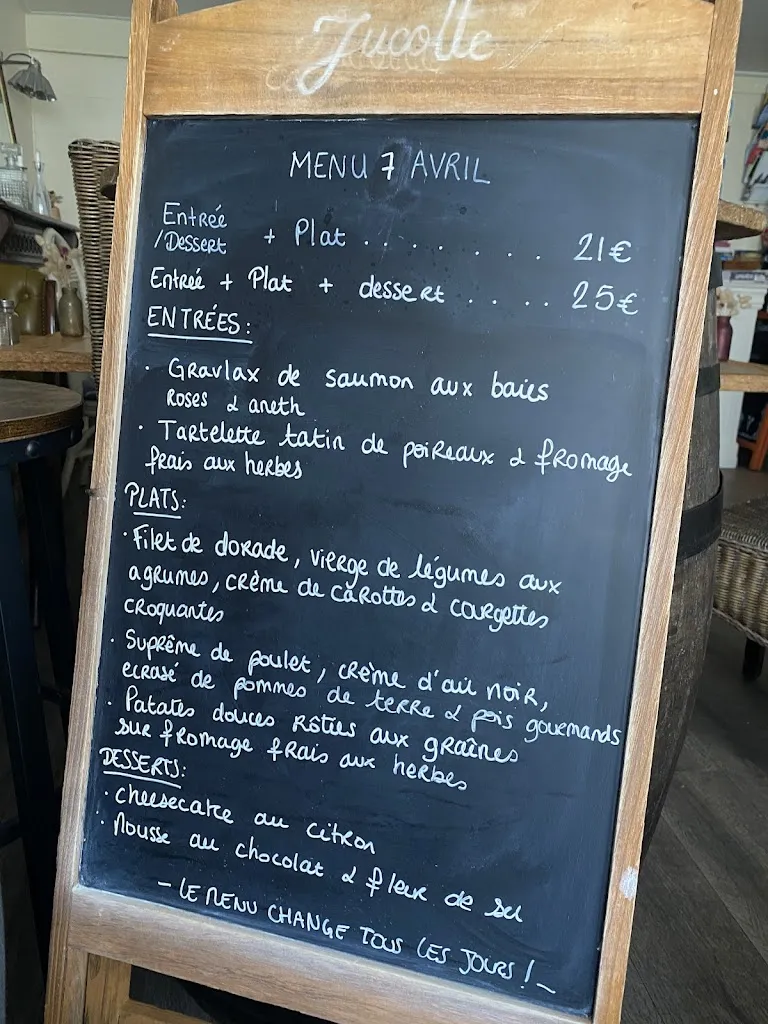 Jucotte
MENU 7 AVRIL
Entrée
/Dessert + Plat . . . . . . . 21€
Entrée + Plat + dessert . . . . 25€
ENTRÉES:
· Gravlax de saumon aux baies
roses & aneth
· Tartelette tatin de poireaux & fromage
frais aux herbes
PLATS:
· Filet de dorade, vierge de légumes aux
agrumes, crème de carottes & courgettes
croquantes
· Suprême de poulet, crème d'ail noir,
ecrasé de pommes de terre & pois gourmands
· Patates douces rôties aux graînes
sur fromage frais aux herbes
DESSERTS:
· cheesecake au citron
· Mousse au chocolat & fleur de sel
- LE MENU CHANGE TOUS LES JOURS ! -